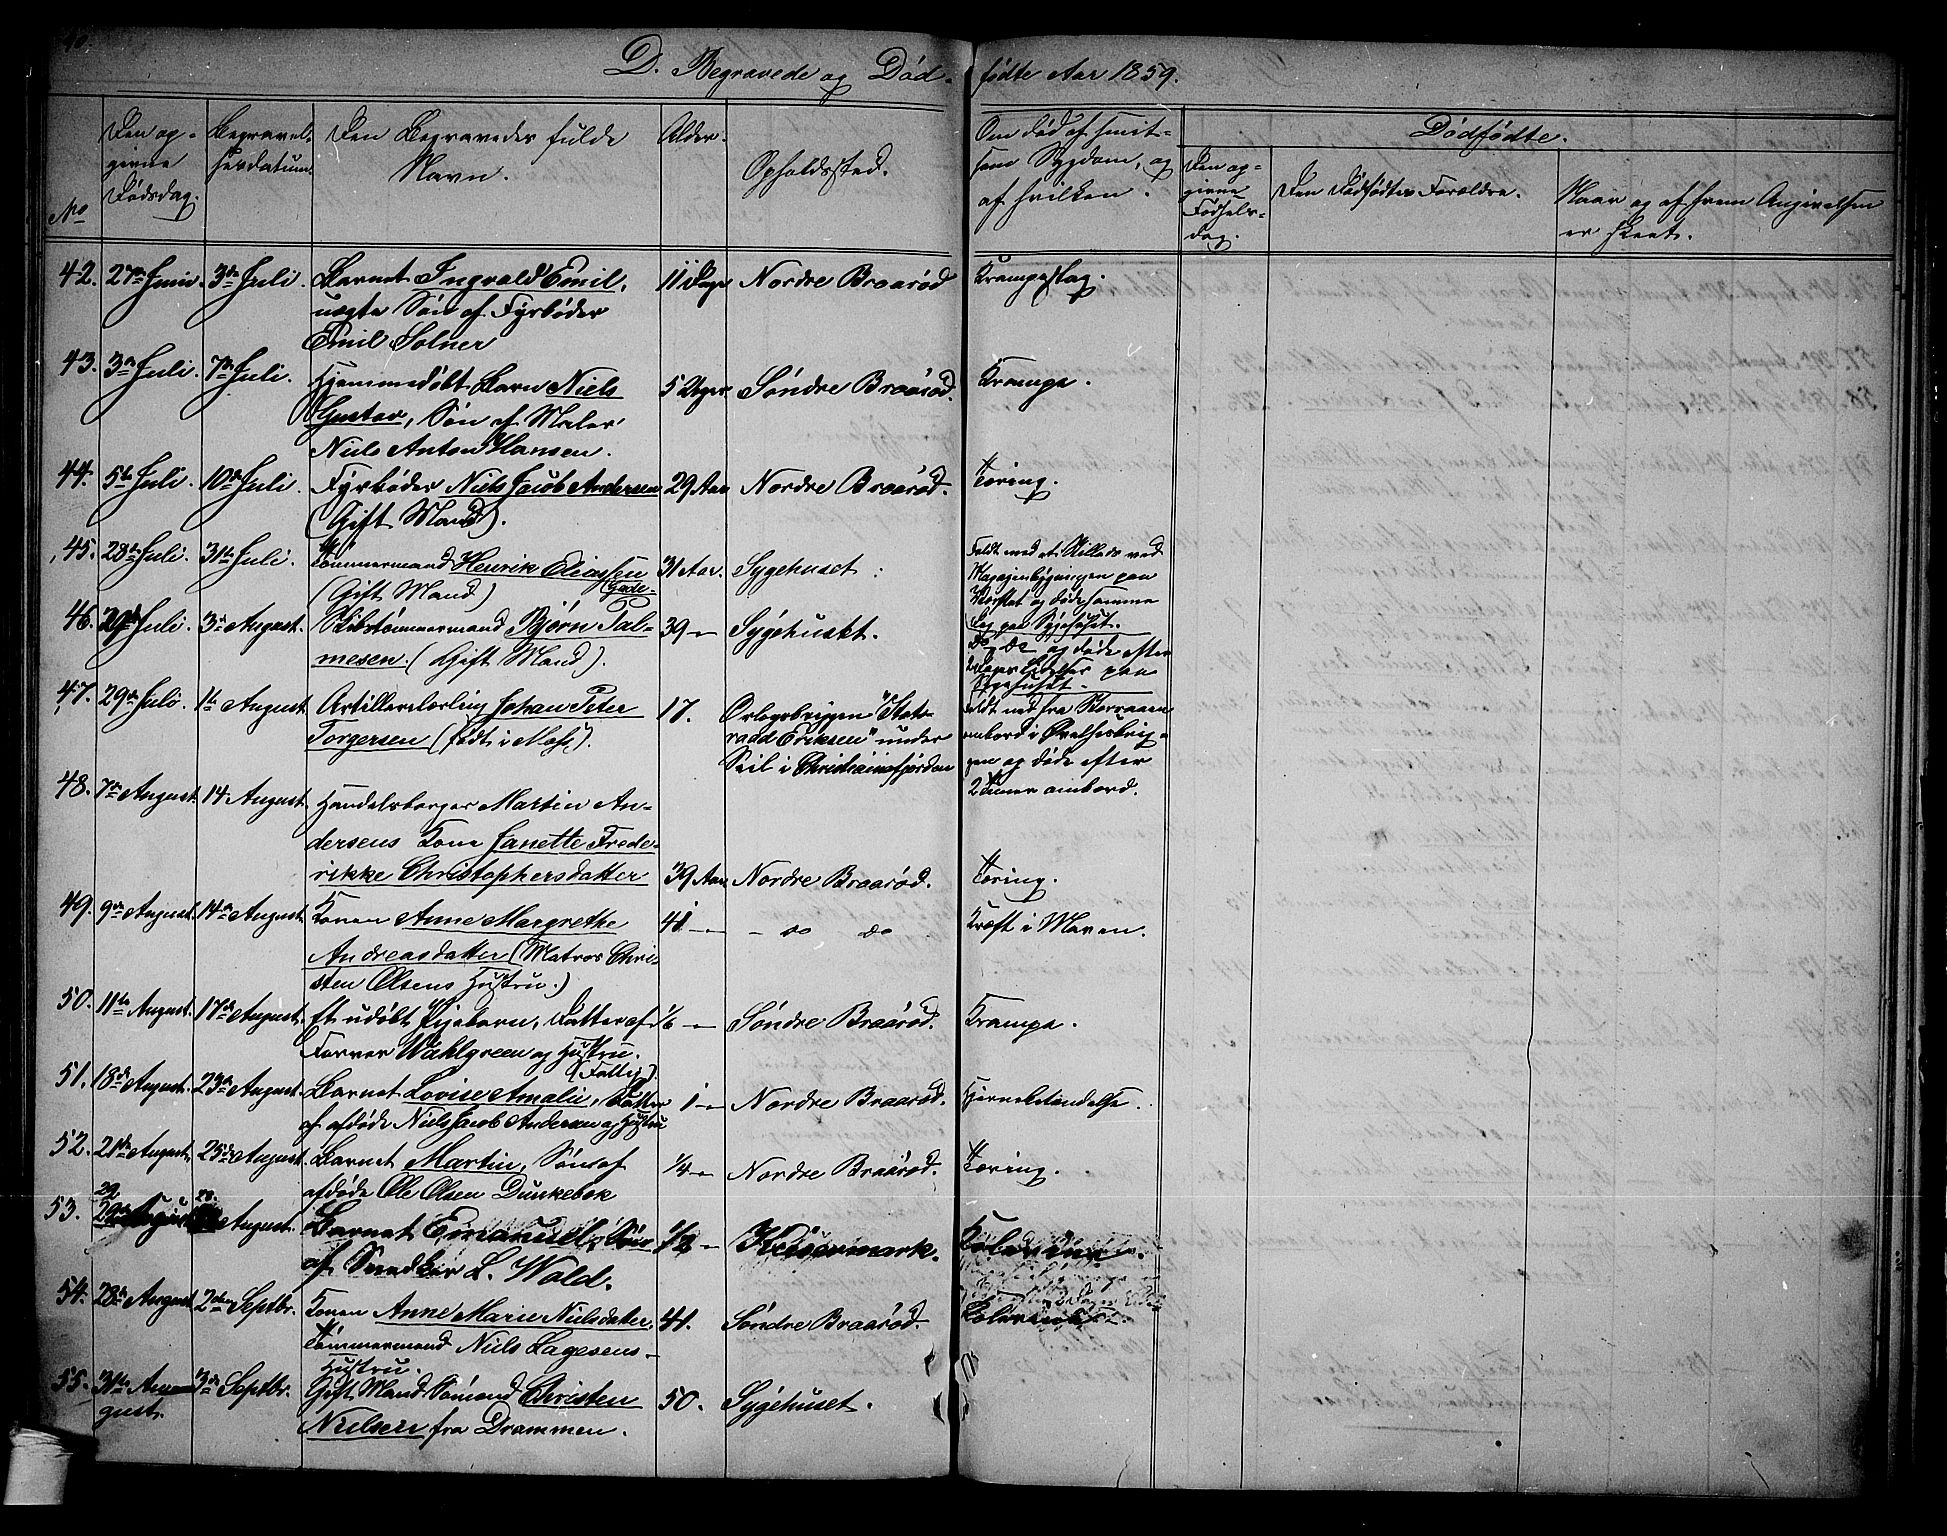 D. Begravede og Død-
fødte Aar 1859.
No
Den op-
givne
Dødsdag.
Begravel-
sesdatum.
Den Begravedes fulde
Navn.
Alder.
Opholdssted.
Om død af smit-
som Sygdom, og
af hvilken.
Dødfødte.
Den op-
givne
Fødsels-
dag.
Den Dødfødtes Forældre.
Naar og af hvem Angivelsen
er skeet.
42. 27de Juni. 3die Juli. Barnet Ingvald Emil, 11 Dage Nordre Braarød Krampeslag.
uægte Søn af Fyrbøder
Emil Solner
43. 3die Juli. 7de Juli. Hjemmedøbt Barn Niels 5 Uger Søndre Braarød. Krampe.
Gustav, Søn af Maler
Niels Anton Hansen.
44. 5te Juli. 10de Juli. Fyrbøder Niels Jacob Andersen 29 Aar Nordre Braarød. Tæring.
(Gift Mand).
45. 28de Juli. 31te Juli. Tømmermand Henrik Eliassen 31 Aar. Sygehuset.
(Gift Mand)
Faldt med et Stillads ved
Magazinbygningen paa
Værftet og døde samme
Dag paa Sygehuset.
46. 29de Juli. 3die August. Skibstømmermand Bjørn Pal- 39 — Sygehuset.
mesen. (Gift Mand).
Do Do og døde efter
paa
Sygehuset.
47. 29de Juli. 1te August Artillerilærling Johan Peter 17. Orlogsbriggen "Stats-
Torgersen (født i Moss).
raad Eriksen" under
Seil i Christianiafjorden
Faldt ned fra Storraaen
ombord i Øvelsesbrig-
gen og døde efter
2 Timer ombord.
48. 7de August. 14 August Handelsborger Martin An-
dersens Kone Janette Frede-
rikke Christophersdatter 39 Aar Nordre Braarød. Tæring.
49. 9de August. 14de August. Konen Anne Margrethe 41 — — do do Kræft i Maven.
Andreasdatter (Matros Chri-
sten Olsens Hustru.)
50. 11te August. 17de August. Et udøbt Pigebarn, Datter af 1/6 — Søndre Braarød. Krampe.
Farver Wahlgreen og Hustru.
(Fattig).
51. 18de August. 23de August. Barnet Lovise Amalie, Datter 1 — Nordre Braarød. Hjernebetændelse.
af afdøde Niels Jacob Andersen og Hustru
52. 21de August. 25de August. Barnet Martin, Søn af 1/4 — Nordre Braarød. Tæring.
afdøde Ole Olsen Dunkebek
53. August August. Barnet Emanuel, Søn 1/2 — Keisermark.
af Snedker L. Wold.
54. 28de August 2den Septbr. Konen Anne Marie Nielsdatter, 41. Søndre Braarød.
Tømmermand Niels Lagesens
Hustru.
55. 31te Au-
gust. 3die Septbr. Gift Mand Sømand Christen 50. Sygehuset.
Nielsen fra Drammen.